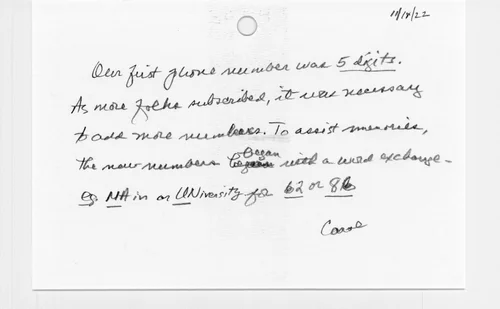 11/18/22
Our first phone number was 5 digits.
As more folks subscribed, it was necessary
to add more numbers. To assist memories,
the new numbers began with a word exchange -
eg MAin or UNiversity for 62 or 86